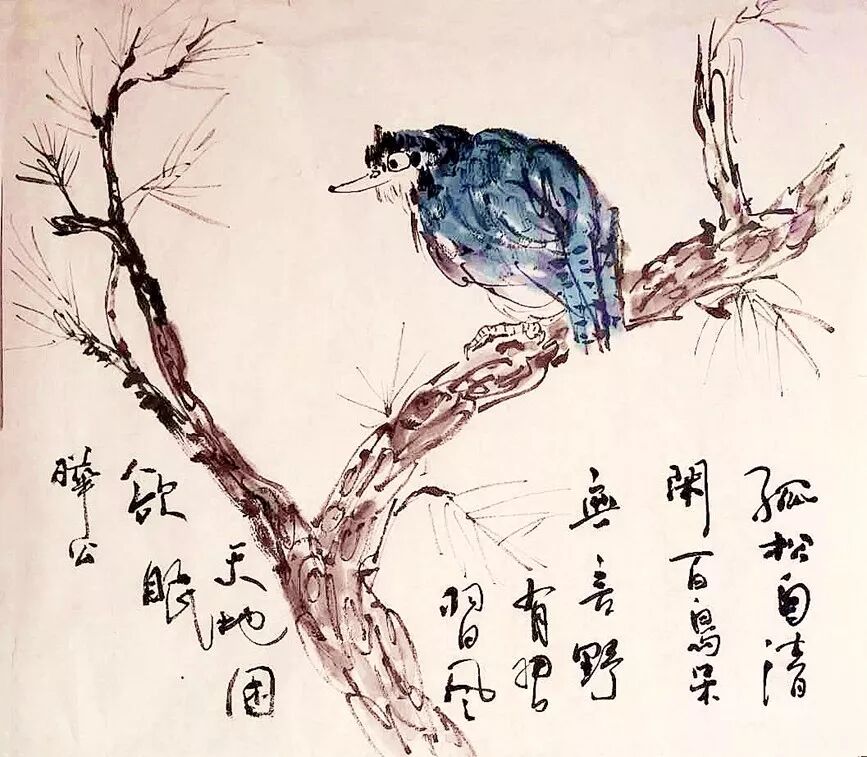 孤松自清
閑百鳥呆
無言野
有
習風
天地困
欲眠
曄公